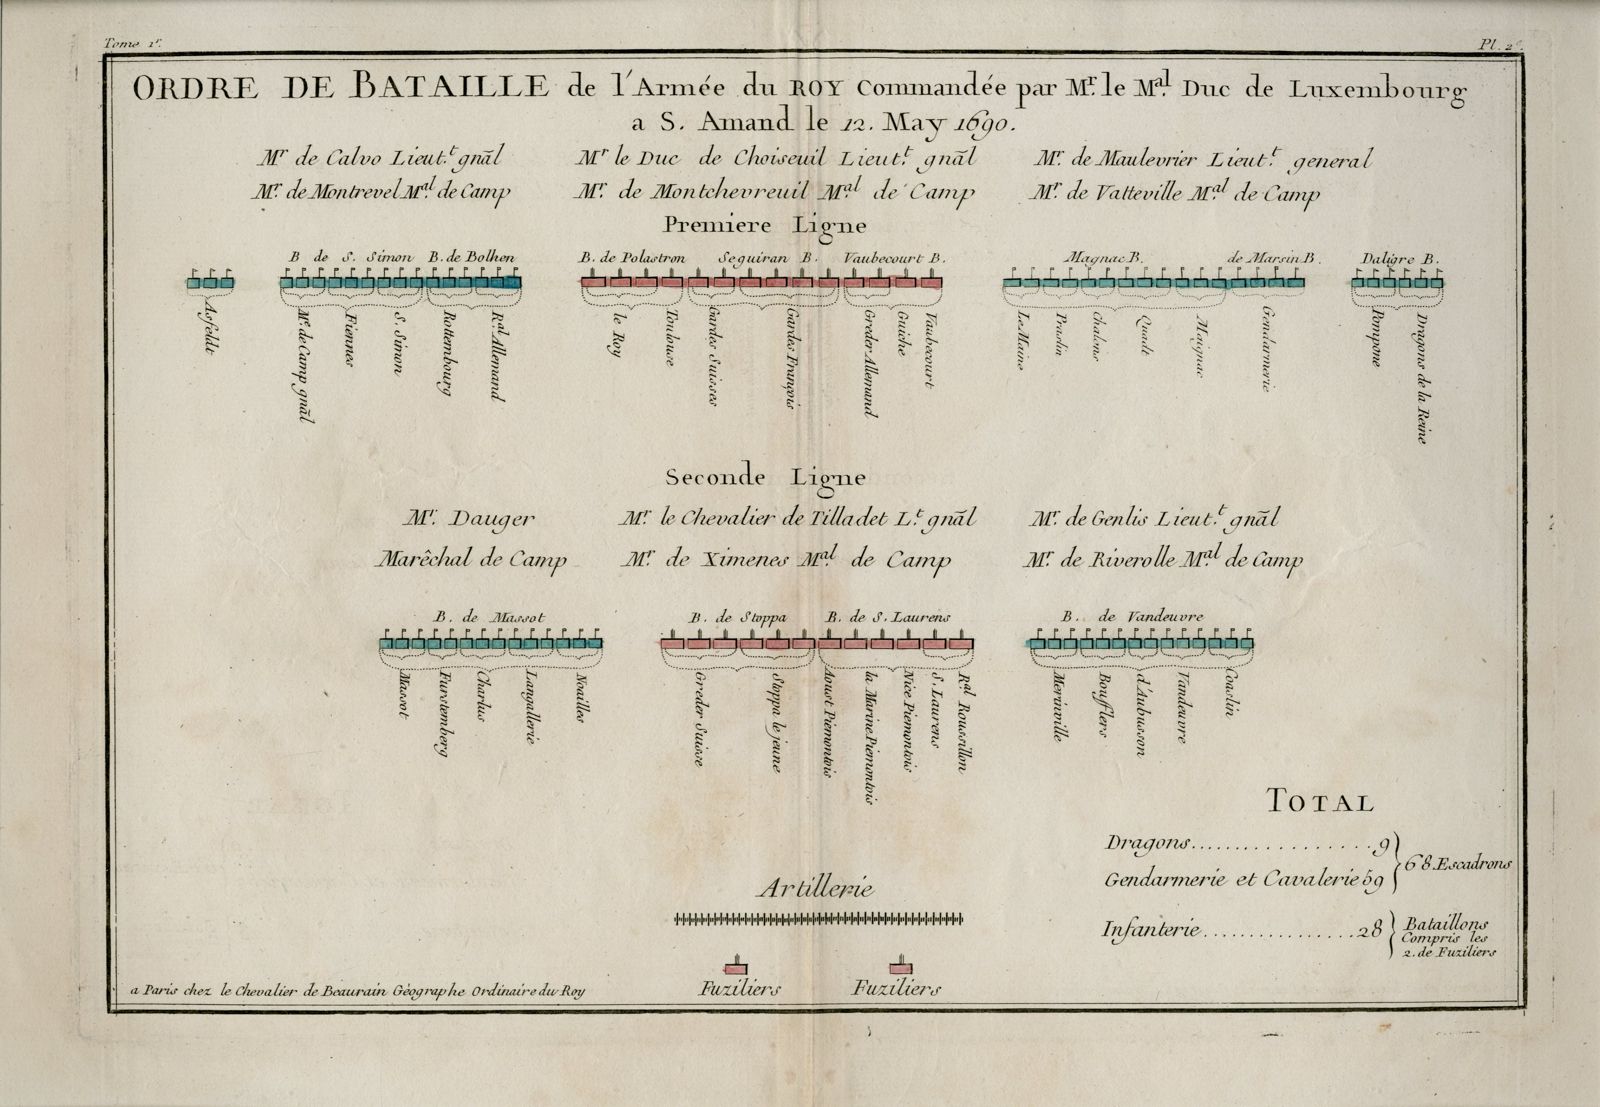 Tome 1.r
Pl. 2.e
ORDRE DE BATAILLE de l'Armée du ROY Commandée par M.r le M.al Duc de Luxembourg
a S. Amand le 12. May 1690.
M.r de Calvo Lieut.t gnãl
M.r le Duc de Choiseuil Lieut.t gnãl
M.r de Maulevrier Lieut.t general
M.r de Montrevel M.al de Camp
M.r de Montchevreuil M.al de Camp
M.r de Vatteville M.al de Camp
Premiere Ligne
B de S. Simon
B. de Bolhen
B. de Polastron
Seguiran B.
Vaubecourt B.
Magnac B.
de Marsin B.
Daligre B.
Asfeldt
M.e de Camp gnãl
Fiennes
S. Simon
Rottembourg
R.al Allemand
le Roy
Toulouse
Gardes Suisses
Gardes François
Greder Allemand
Guiche
Vaubecourt
Le Maine
Praslin
Chalons
Quadt
Maignac
Gendarmerie
Pompone
Dragons de la Reine
Seconde Ligne
M.r Dauger
M.r le Chevalier de Tilladet L.t gnãl
M.r de Genlis Lieut.t gnãl
Marêchal de Camp
M.r de Ximenes M.al de Camp
M.r de Riverolle M.al de Camp
B. de Massot
B. de Stoppa
B. de S. Laurens
B. de Vandeuvre
Massot
Furstemberg
Charlus
Langallerie
Noailles
Greder Suisse
Stoppa le jeune
Aoust Piemontois
la Marine Piemontois
Nice Piemontois
S. Laurens
R.al Roussillon
Merinville
Boufflers
d'Aubusson
Vandeuvre
Coaslin
TOTAL
Dragons.................9
Gendarmerie et Cavalerie 59
68. Escadrons
Infanterie...............28
Bataillons
Compris les
2. de Fuziliers
Artillerie
Fuziliers
Fuziliers
a Paris chez le Chevalier de Beaurain Géographe Ordinaire du Roy